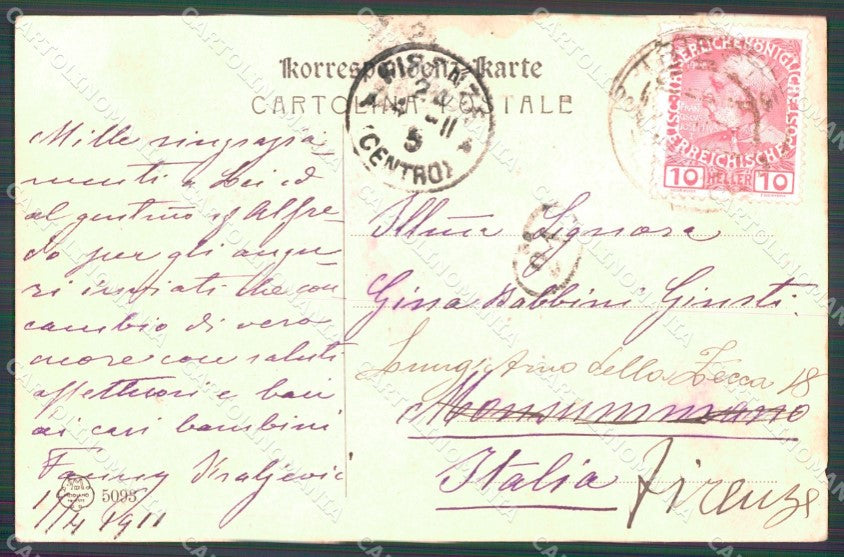 Korrespondenz-Karte
CARTOLINA POSTALE
Mille ringrazia-
menti a Lei ed
al gentmo Sg Alfre-
do per gli augu-
ri inviati che con-
cambio di vero
cuore con saluti
affettuosi e baci
ai cari bambini
Fanny Kraljević
1/4 1911
5093
24
4-11
5
(CENTRO)
10 HELLER 10
Illma Signora
Gina Babbini Giusti.
Lungarno della Zecca 18
Monsummano
Italia Firenze
CARTOLINOMANIA